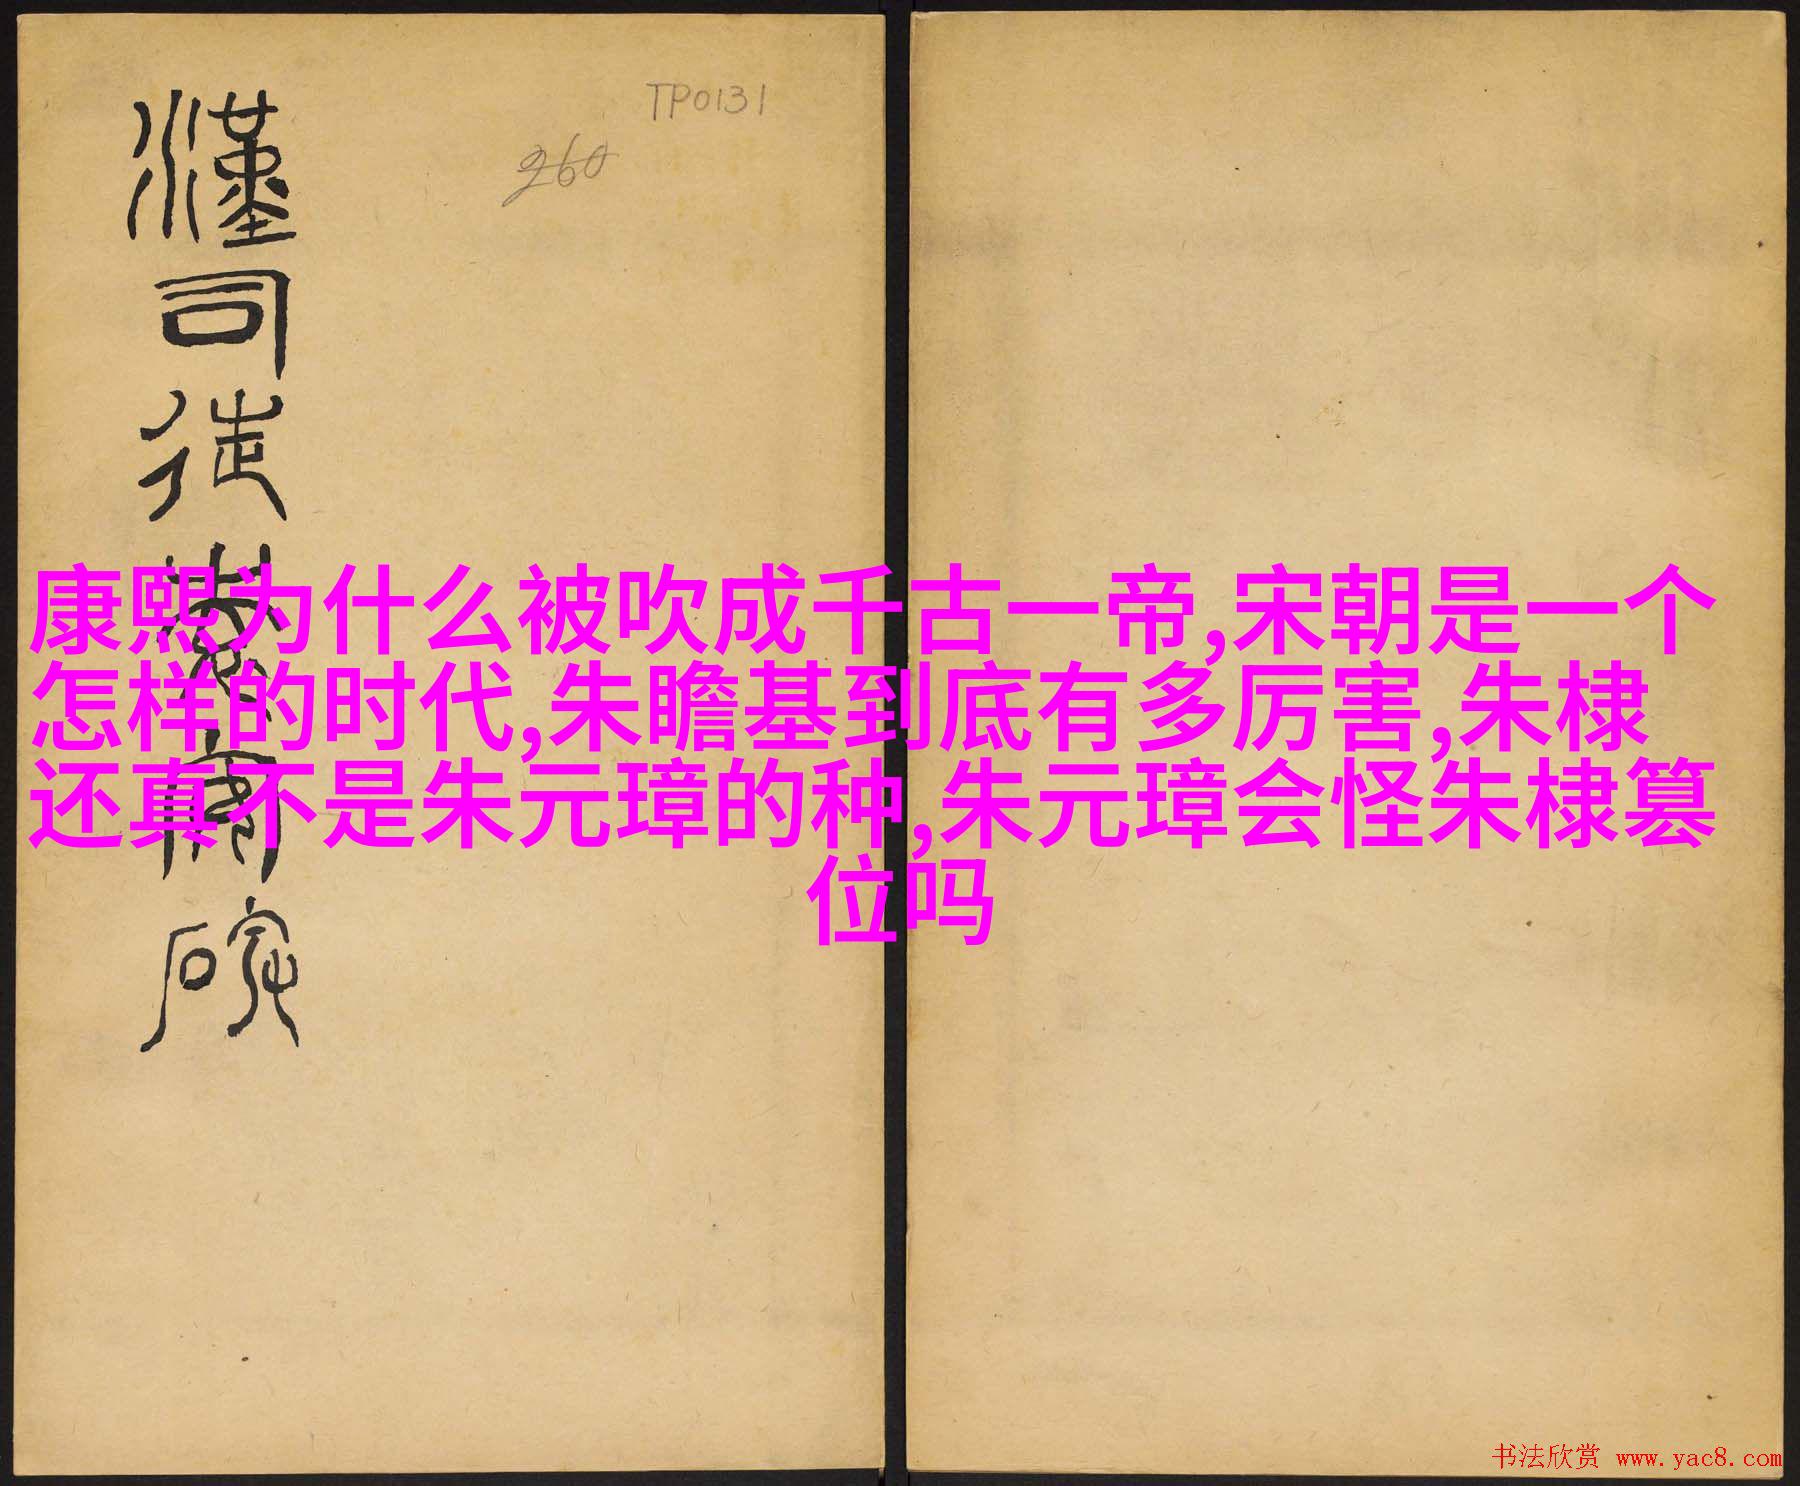 TP0131
260
漢司徒袁安碑
康熙为什么被吹成千古一帝,宋朝是一个
怎样的时代,朱瞻基到底有多厉害,朱棣
还真不是朱元璋的种,朱元璋会怪朱棣篡
位吗
书法欣赏 www.yac8.com